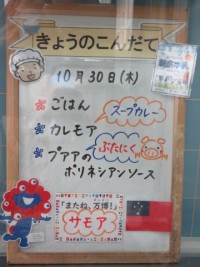 きょうのこんだて
10月30日(木)
ごはん
スープカレー
カレモア
ぶたにく
プアアの
ポリネシアンソース
「またね、万博!」
サモア